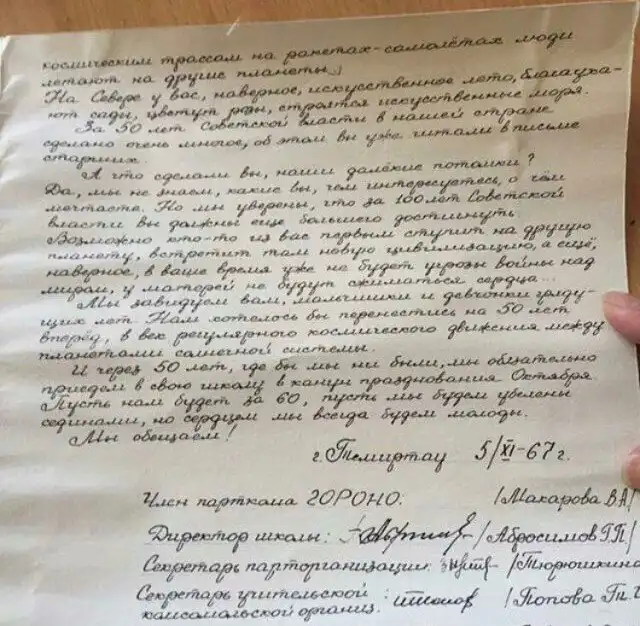 космическим трассам на ракетах-самолётах люди
летают на другие планеты.
На Севере у вас, наверное, искусственное лето, благоуха-
ют сады, цветут розы, строятся искусственные моря.
За 50 лет Советской власти в нашей стране
сделано очень многое, об этом вы уже читали в письме
старших.
А что сделали вы, наши далёкие потомки?
Да, мы не знаем, какие вы, чем интересуетесь, о чём
мечтаете. Но мы уверены, что за 100 лет Советской
власти вы должны ещё большего достигнуть.
Возможно кто-то из вас первым ступит на другую
планету, встретит там новую цивилизацию, а ещё,
наверное, в ваше время уже не будет угрозы войны над
миром, у матерей не будут сжиматься сердца...
Мы завидуем вам, мальчишки и девчонки гряду-
щих лет. Нам хотелось бы перенестись на 50 лет
вперёд, в век регулярного космического движения между
планетами солнечной системы.
И через 50 лет, где бы мы ни были, мы обязательно
приедем в свою школу в канун празднования Октября.
Пусть нам будет за 60, пусть мы будем убелены
сединами, но сердцем мы всегда будем молоды.
Мы обещаем!
г. Темиртау 5/XI-67 г.
Член парткома ГОРОНО. /Макарова В.А/
Директор школы: /Абросимов Г.П/
Секретарь парторганизации: /Тюрюшкина
Секретарь учительской : /Попова
комсомольской организ.